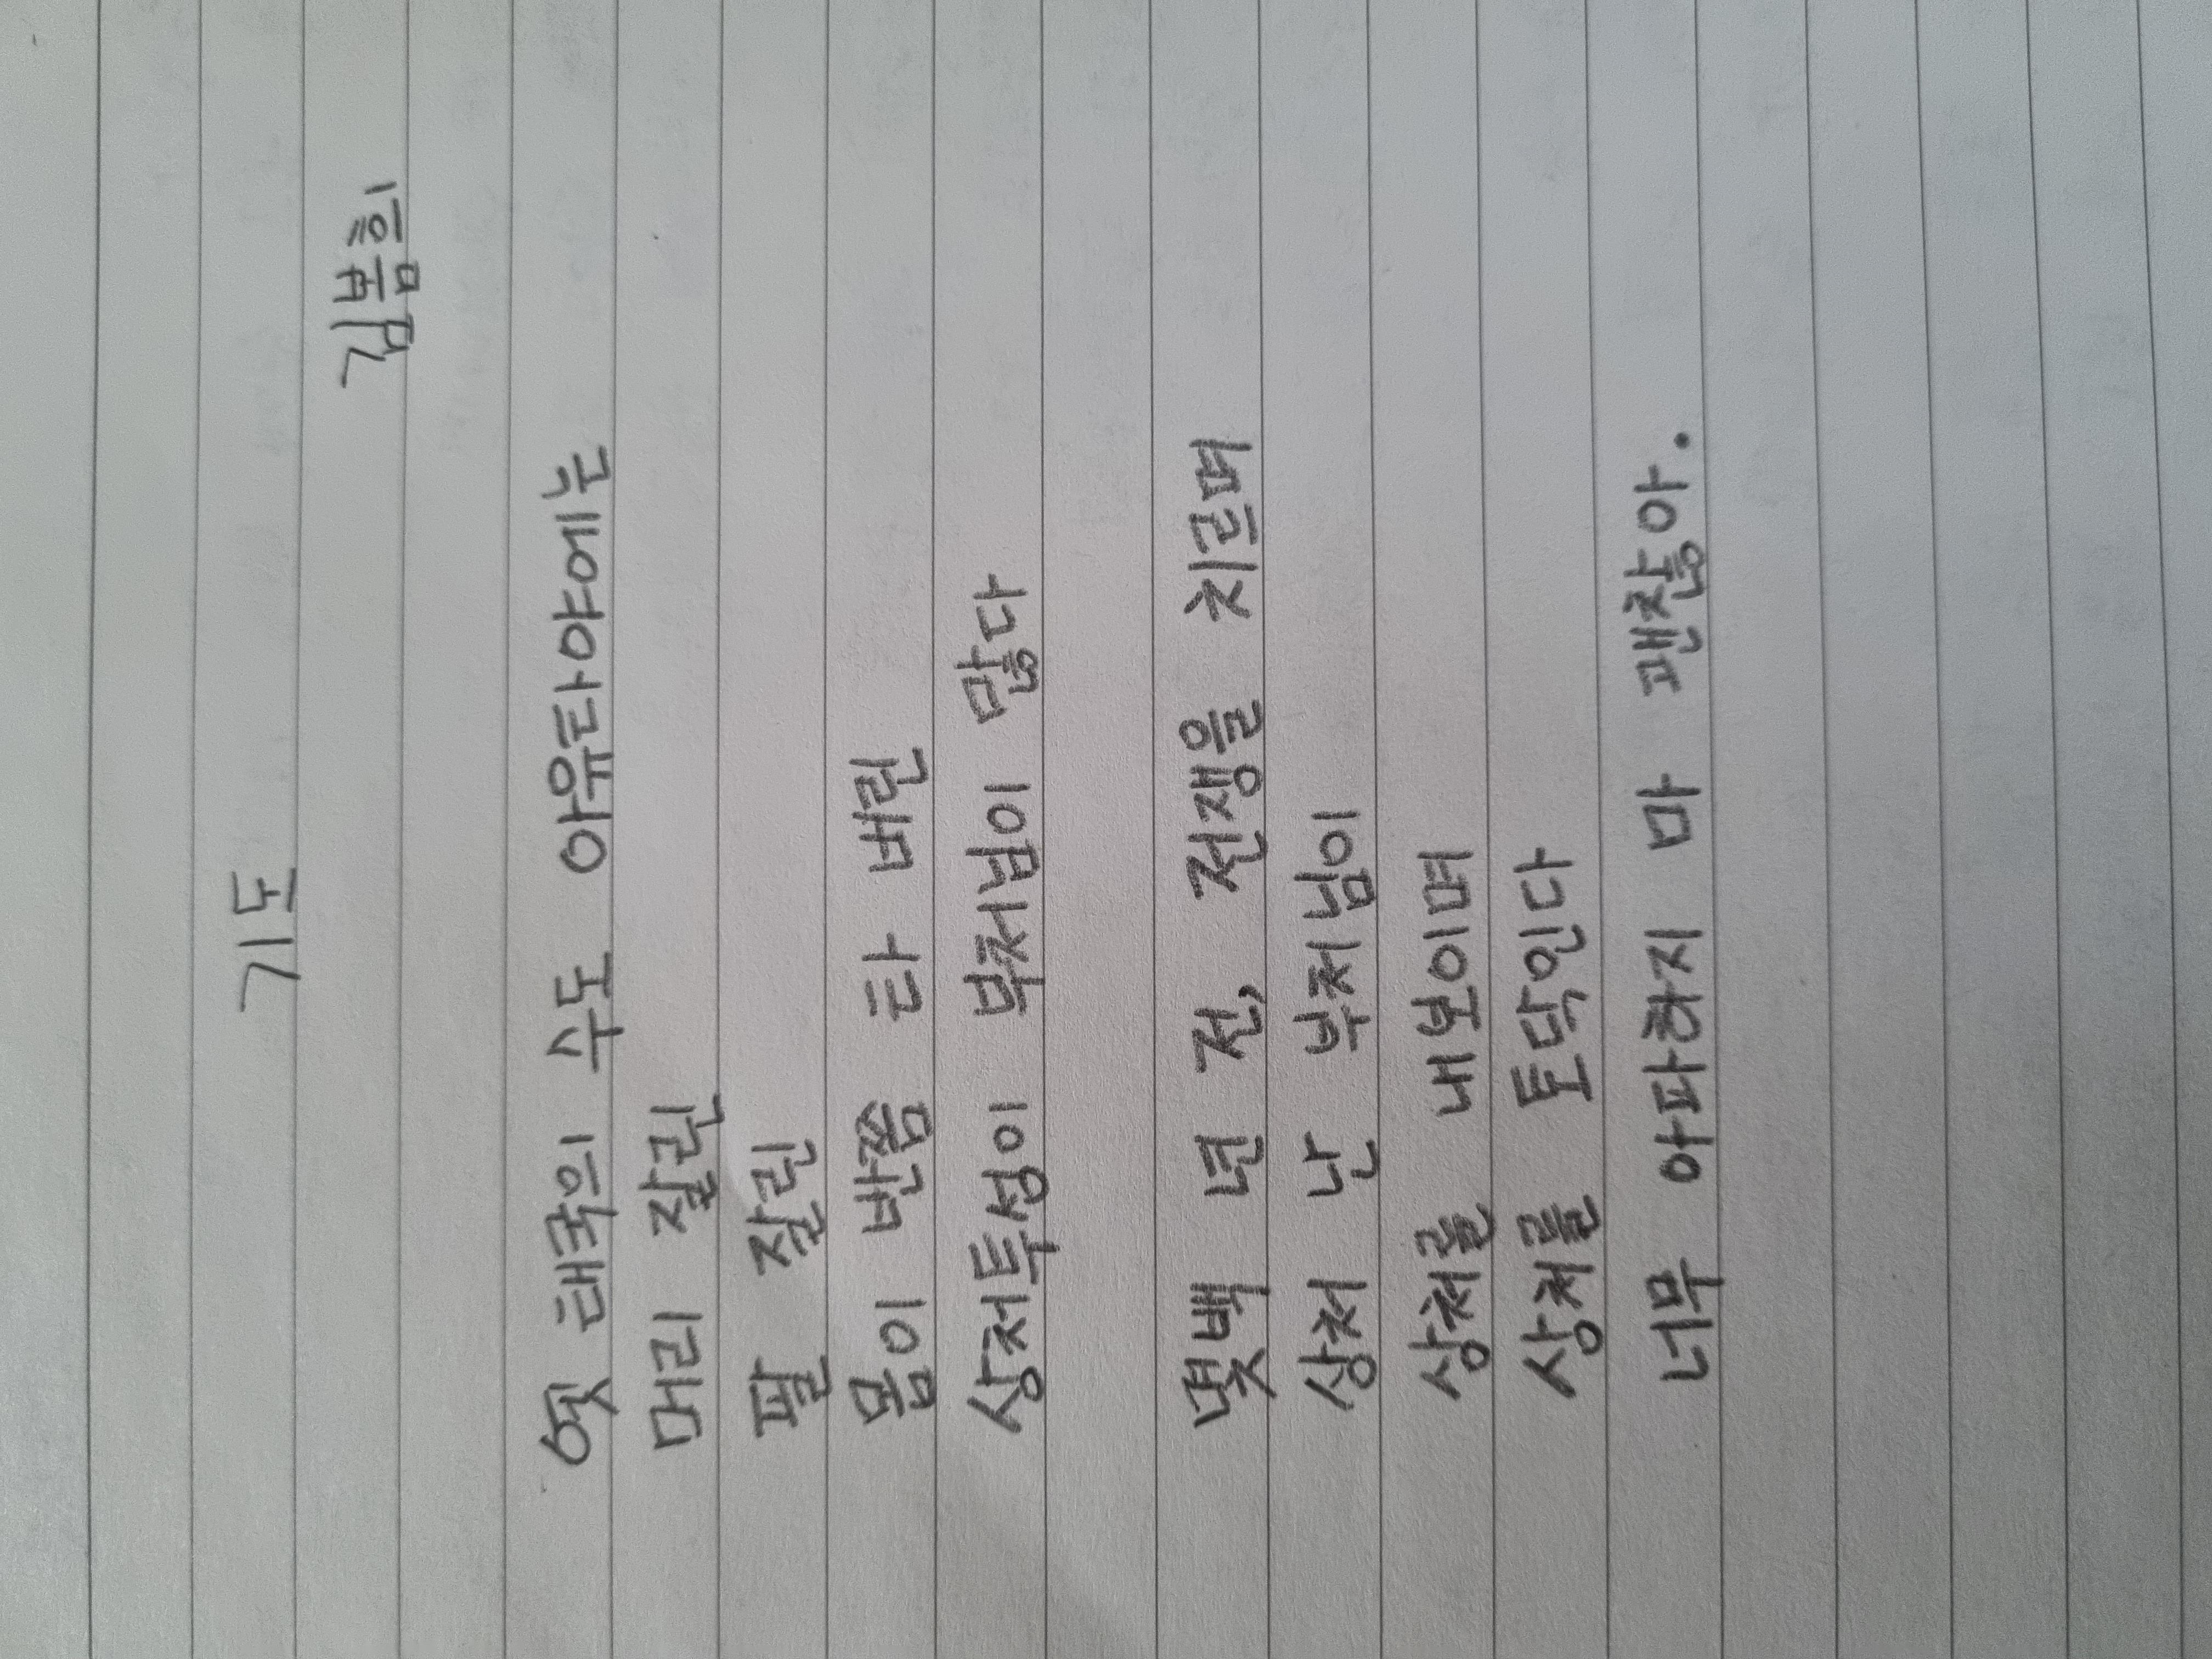 기도
김봄희
옛 태국의 수도 아유타야에는
머리 잘린
팔 잘린
몸이 반쯤 타 버린
상처투성이 부처님이 많다
몇백 년 전, 전쟁을 치르며
상처 난 부처님이
상처를 내보이며
상처를 토닥인다
너무 아파하지 마 괜찮아.